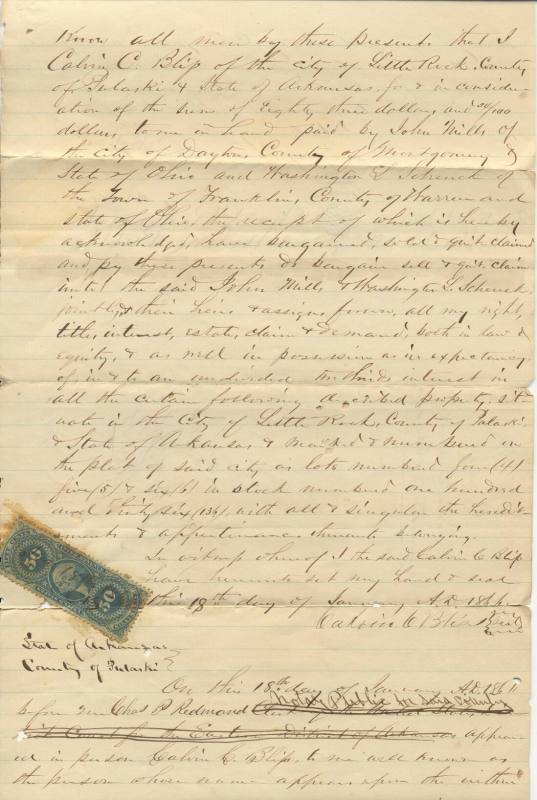 Know all men by these presents that I
Calvin C. Bliss of the city of Little Rock County
of Pulaski & State of Arkansas for & in consider-
ation of the sum of Eighty three dollars and /100
dollars to me in hand paid by John Mills of
the city of Dayton County of Montgomery &
State of Ohio and Washington L Schenck of
the Town of Franklin, County of Warren and
State of Ohio the receipt of which is hereby
acknowledged, have bargained, sold & quit claimed
and by these presents do bargain sell & quit claim
unto the said John Mills & Washington L. Schenck
jointly & their heirs & assigns forever, all my right,
title, interest, estate, claim & demand, both in law &
equity, & as well in possession as in expectancy
of, in & to an undivided interest in
all the certain following described property, sit-
uate in the City of Little Rock, County of Pulaski
& State of Arkansas & marked & numbered on
the plat of said city as lots numbered four (4)
five (5) & six (6) in block numbered one hundred
and thirty six (136), with all & singular the heredit-
aments & appurtenances thereunto belonging.
In witness whereof I the said Calvin C Bliss
have hereunto set my hand & seal
this 18th day of January A.D. 186
Calvin C Bliss Seal
50 50
State of Arkansas
County of Pulaski
On this 18th day of January A.D. 186
Notary Public in said County
before me Chas P Redmond
Court for the Eastern District of Arkansas appear-
ed in person Calvin C. Bliss, to me well known as
the person whose name appears upon the within